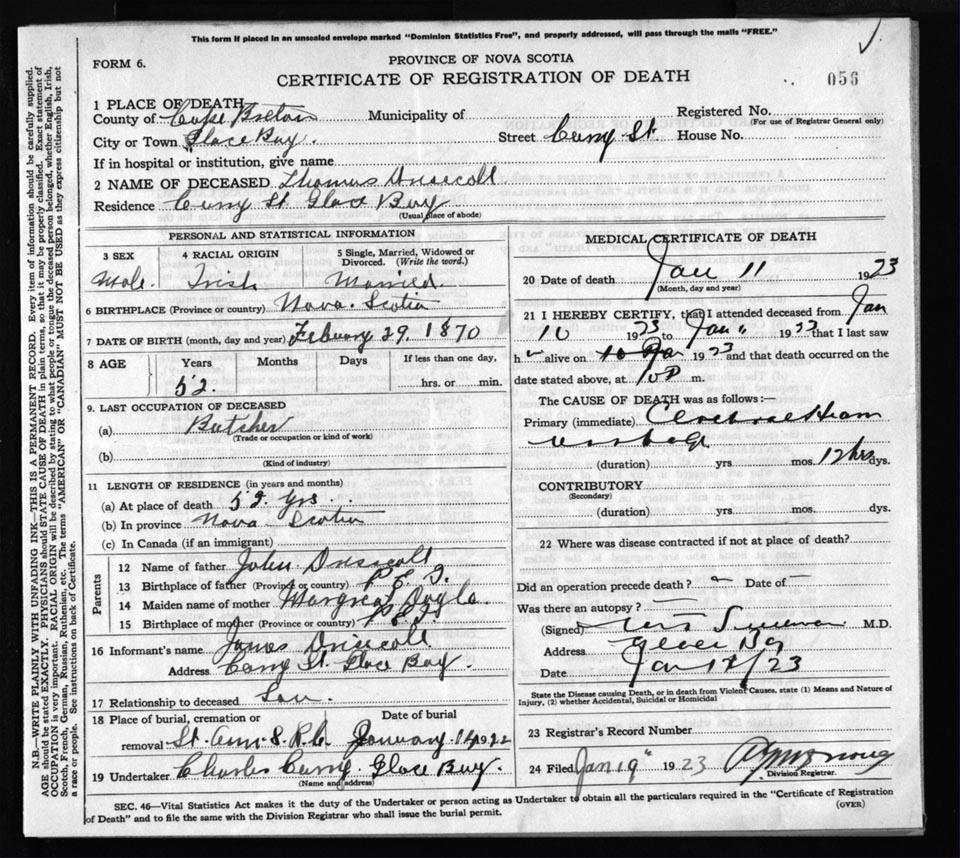 This form if placed in an unsealed envelope marked "Dominion Statistics Free", and properly addressed, will pass through the mails "FREE."
FORM 6.
PROVINCE OF NOVA SCOTIA
CERTIFICATE OF REGISTRATION OF DEATH
056
1 PLACE OF DEATH
County of Cape Breton Municipality of Registered No.
(For use of Registrar General only)
City or Town Glace Bay. Street House No.
If in hospital or institution, give name
2 NAME OF DECEASED Thomas Driscoll
Residence St Glace Bay
(Usual place of abode)
PERSONAL AND STATISTICAL INFORMATION
3 SEX 4 RACIAL ORIGIN 5 Single, Married, Widowed or Divorced. (Write the word.)
Male. Irish Married.
6 BIRTHPLACE (Province or country) Nova Scotia
7 DATE OF BIRTH (month, day and year) Febuary 29. 1870
8 AGE Years Months Days If less than one day,
52. hrs. or min.
9. LAST OCCUPATION OF DECEASED
(a) Butcher
(Trade or occupation or kind of work)
(b)
(Kind of industry)
11 LENGTH OF RESIDENCE (in years and months)
(a) At place of death 52 Yrs.
(b) In province Nova Scotia
(c) In Canada (if an immigrant)
Parents
12 Name of father John Driscoll
13 Birthplace of father (Province or country) P.E.I.
14 Maiden name of mother Margreat
15 Birthplace of mother (Province or country) P.E.I.
16 Informant's name James Driscoll
Address St. Glace Bay.
17 Relationship to deceased Son.
18 Place of burial, cremation or removal Date of burial
St. Ann's R.C. January 14 1922
19 Undertaker Charles Glace Bay.
(Name and address)
MEDICAL CERTIFICATE OF DEATH
20 Date of death Jan 11 1923
(Month, day and year)
21 I HEREBY CERTIFY, that I attended deceased from Jan
10 1923 to Jan 11 1923 that I last saw
h alive on 10 Jan 1923 and that death occurred on the
date stated above, at m.
The CAUSE OF DEATH was as follows:—
Primary (immediate) Cerebral Haem
orrhage
(duration) yrs. mos. 12 hrs dys.
CONTRIBUTORY
(Secondary)
(duration) yrs. mos. dys.
22 Where was disease contracted if not at place of death?
Did an operation precede death? Date of
Was there an autopsy?
(Signed) M.D.
Address Glace Bay
Date Jan 12/23
State the Disease causing Death, or in death from Violent Causes, state (1) Means and Nature of Injury, (2) whether Accidental, Suicidal or Homicidal
23 Registrar's Record Number
24 Filed Jan 19" 1923
Division Registrar.
SEC. 46—Vital Statistics Act makes it the duty of the Undertaker or person acting as Undertaker to obtain all the particulars required in the "Certificate of Registration
of Death" and to file the same with the Division Registrar who shall issue the burial permit.
(OVER)
N.B.—WRITE PLAINLY WITH UNFADING INK—THIS IS A PERMANENT RECORD. Every item of information should be carefully supplied.
AGE should be stated EXACTLY. PHYSICIANS should STATE CAUSE OF DEATH in plain terms, so that it may be properly classified. Exact statement of
OCCUPATION is very important. RACIAL ORIGIN will be described by stating to what people or tongue the deceased person belonged, whether English, Irish,
Scotch, French, German, Russian, Ruthenian, etc. The terms "AMERICAN" OR "CANADIAN" MUST NOT BE USED as they express citizenship but not
a race or people. See instructions on back of Certificate.